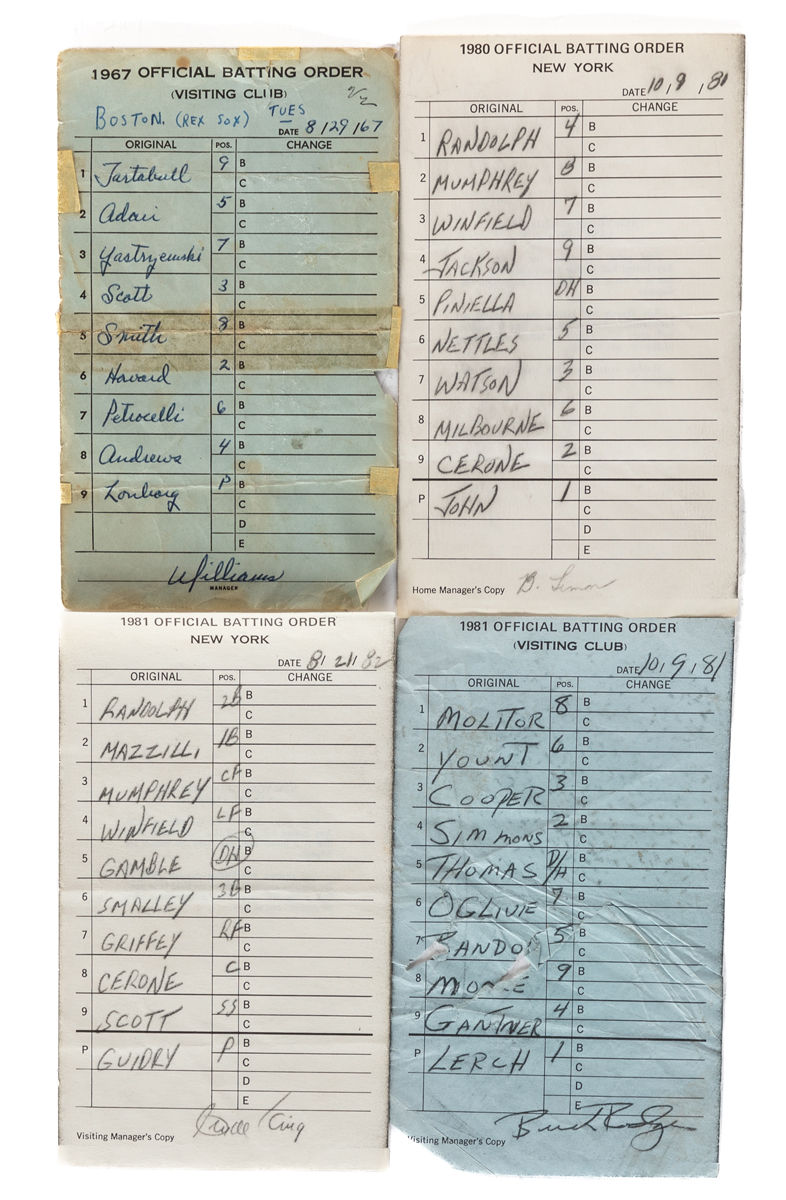 1967 OFFICIAL BATTING ORDER
(VISITING CLUB)
BOSTON. (REX SOX) TUES
DATE 8/29/67
ORIGINAL POS. CHANGE
1 Tartabull 9 B
C
2 Adair 5 B
C
3 Yastryemski 7 B
C
4 Scott 3 B
C
5 Smith 8 B
C
6 Howard 2 B
C
7 Petrocelli 6 B
C
8 Andrews 4 B
C
9 Lonborg P B
C
D
E
Williams
MANAGER
1980 OFFICIAL BATTING ORDER
NEW YORK
DATE 10/9/81
ORIGINAL POS. CHANGE
1 RANDOLPH 4 B
C
2 MUMPHREY 8 B
C
3 WINFIELD 7 B
C
4 JACKSON 9 B
C
5 PINIELLA DH B
C
6 NETTLES 5 B
C
7 WATSON 3 B
C
8 MILBOURNE 6 B
C
9 CERONE 2 B
C
P JOHN 1 B
C
D
E
Home Manager's Copy B. Lemon
1981 OFFICIAL BATTING ORDER
NEW YORK
DATE 8/21/82
ORIGINAL POS. CHANGE
1 RANDOLPH 2B B
C
2 MAZZILLI 1B B
C
3 MUMPHREY CF B
C
4 WINFIELD LF B
C
5 GAMBLE DH B
C
6 SMALLEY 3B B
C
7 GRIFFEY RF B
C
8 CERONE C B
C
9 SCOTT SS B
C
P GUIDRY P B
C
D
E
Clyde King
Visiting Manager's Copy
1981 OFFICIAL BATTING ORDER
(VISITING CLUB)
DATE 10/9/81
ORIGINAL POS. CHANGE
1 MOLITOR 8 B
C
2 YOUNT 6 B
C
3 COOPER 3 B
C
4 SIMMONS 2 B
C
5 THOMAS D/H B
C
6 OGLIVIE 7 B
C
7 BANDO 5 B
C
8 9 B
C
9 GANTNER 4 B
C
P LERCH 1 B
C
D
E
Buck Rodgers
Visiting Manager's Copy